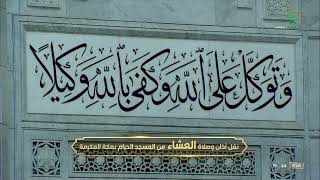 وَتَوَكَّلْ عَلَى ٱللَّهِ وَكَفَىٰ بِٱللَّهِ وَكِيلًا
نقل أذان وصلاة العشاء من المسجد الحرام بمكة المكرمة
KSA